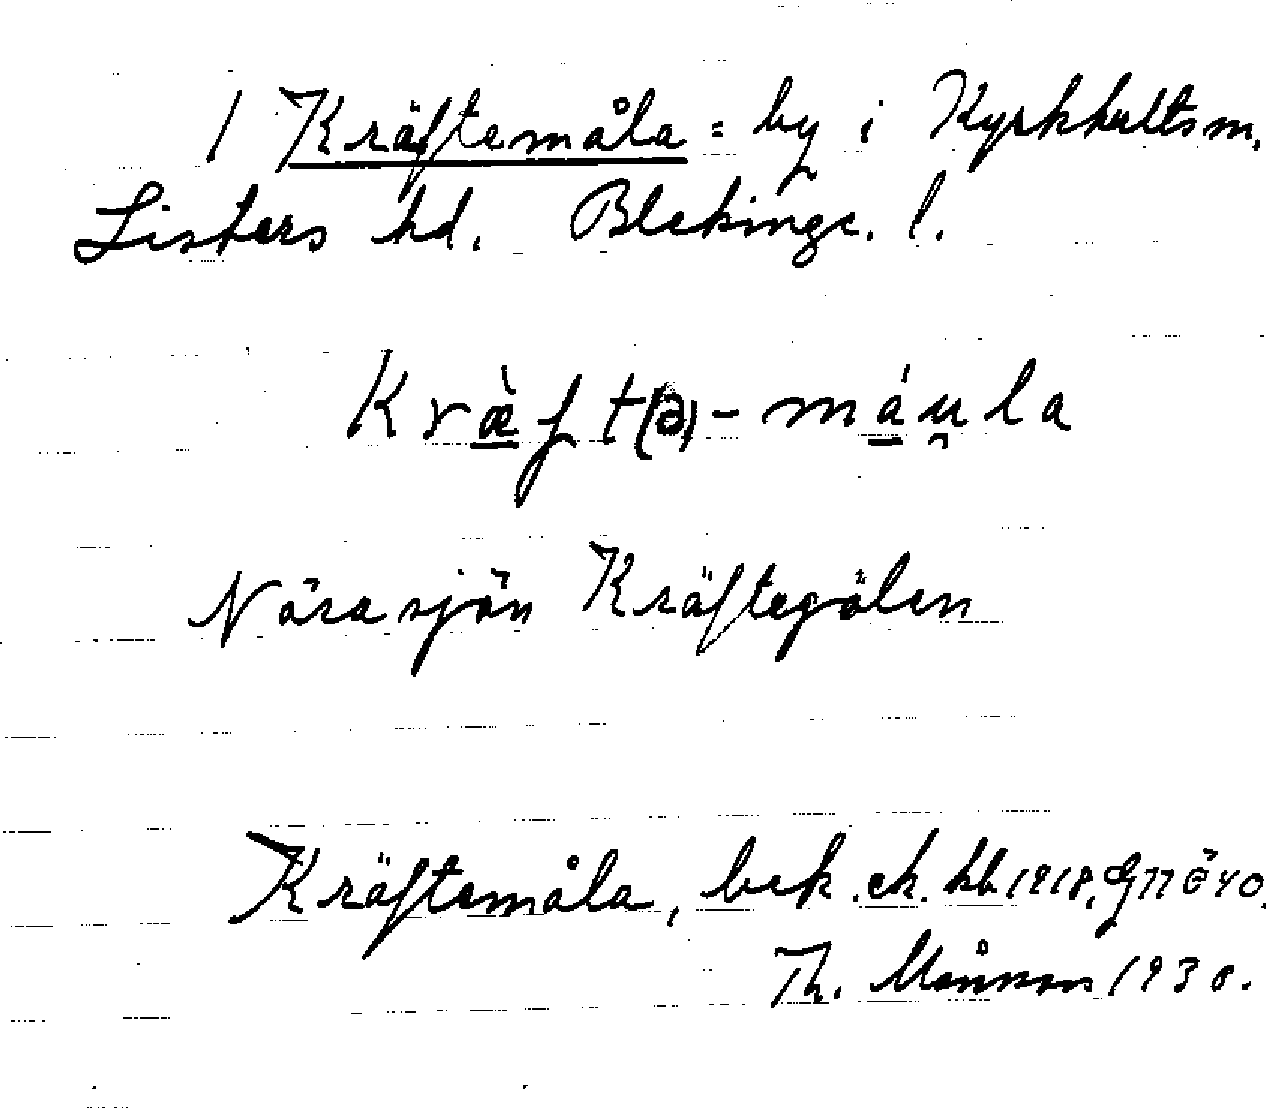 1 Kräftemåla = by i Kyrkhultsm.
Listers hd. Blekinge. l.
Kræ̀ft(ə)-máu̯la
Nära sjön Kräftegölen
Kräftemåla, bek. ek. kb. 1918. G 77 Ö 40.
Th. Månsson 1930.